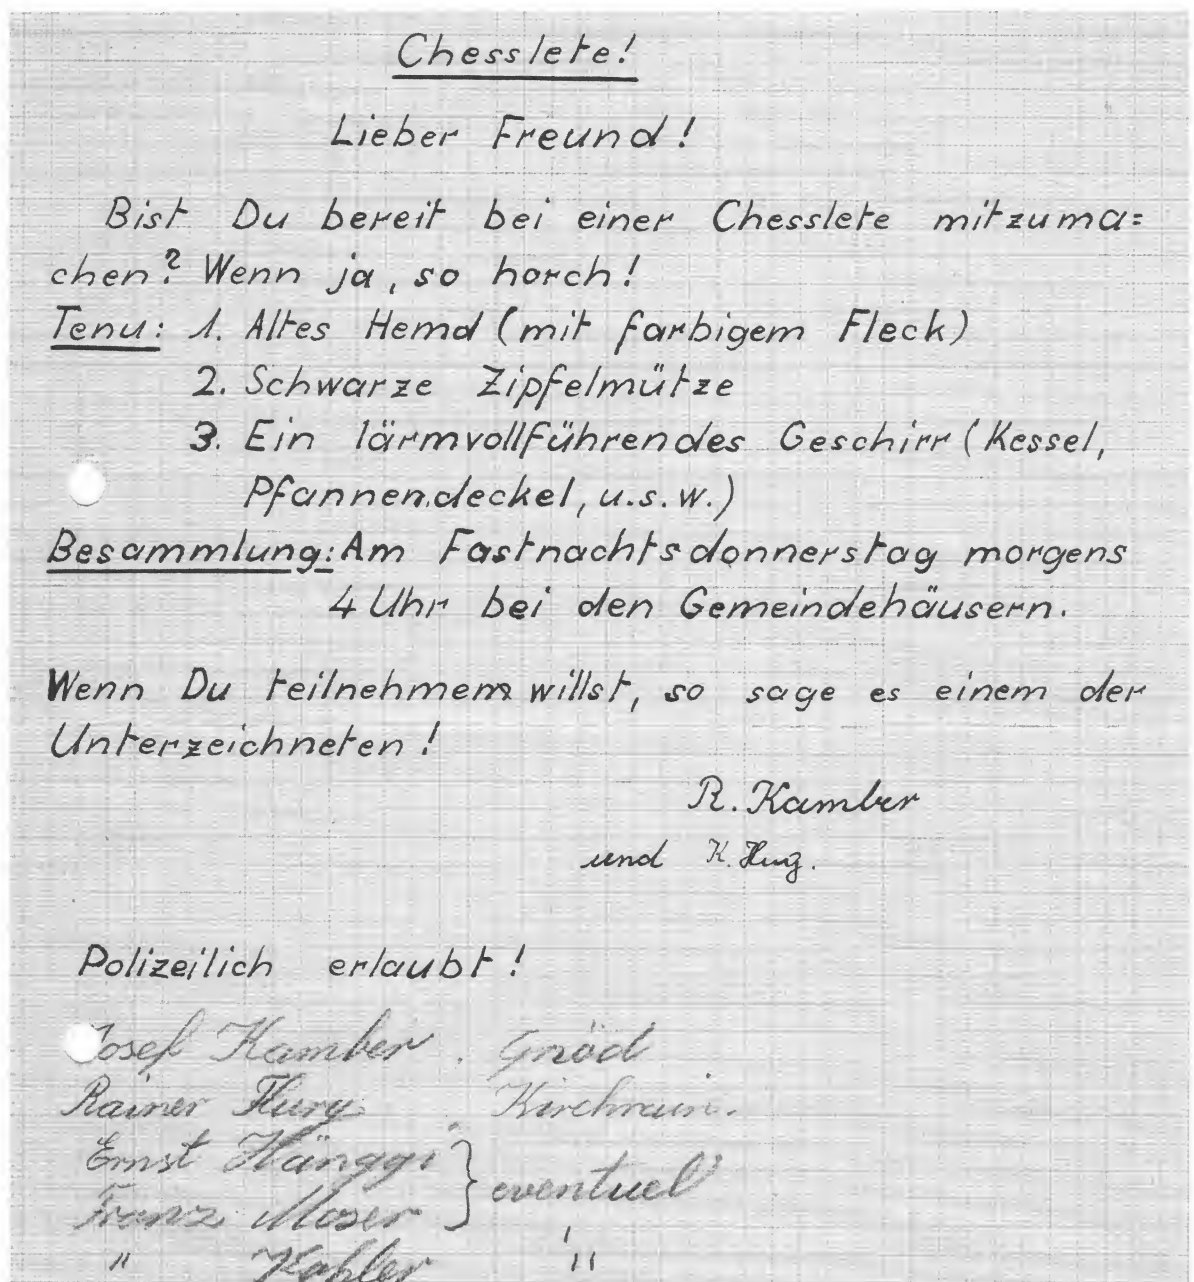 Chesslete!
Lieber Freund!
Bist Du bereit bei einer Chesslete mitzuma=
chen? Wenn ja, so horch!
Tenu: 1. Altes Hemd (mit farbigem Fleck)
2. Schwarze Zipfelmütze
3. Ein lärmvollführendes Geschirr (Kessel,
Pfannendeckel, u.s.w.)
Besammlung: Am Fastnachtsdonnerstag morgens
4 Uhr bei den Gemeindehäusern.
Wenn Du teilnehmen willst, so sage es einem der
Unterzeichneten!
R. Kamber
und K.
Polizeilich erlaubt!
Josef Kamber. Gnöd
Rainer Flury. Kirchrain.
Ernst Hänggi } eventuel
Franz Moser
" Kahler "